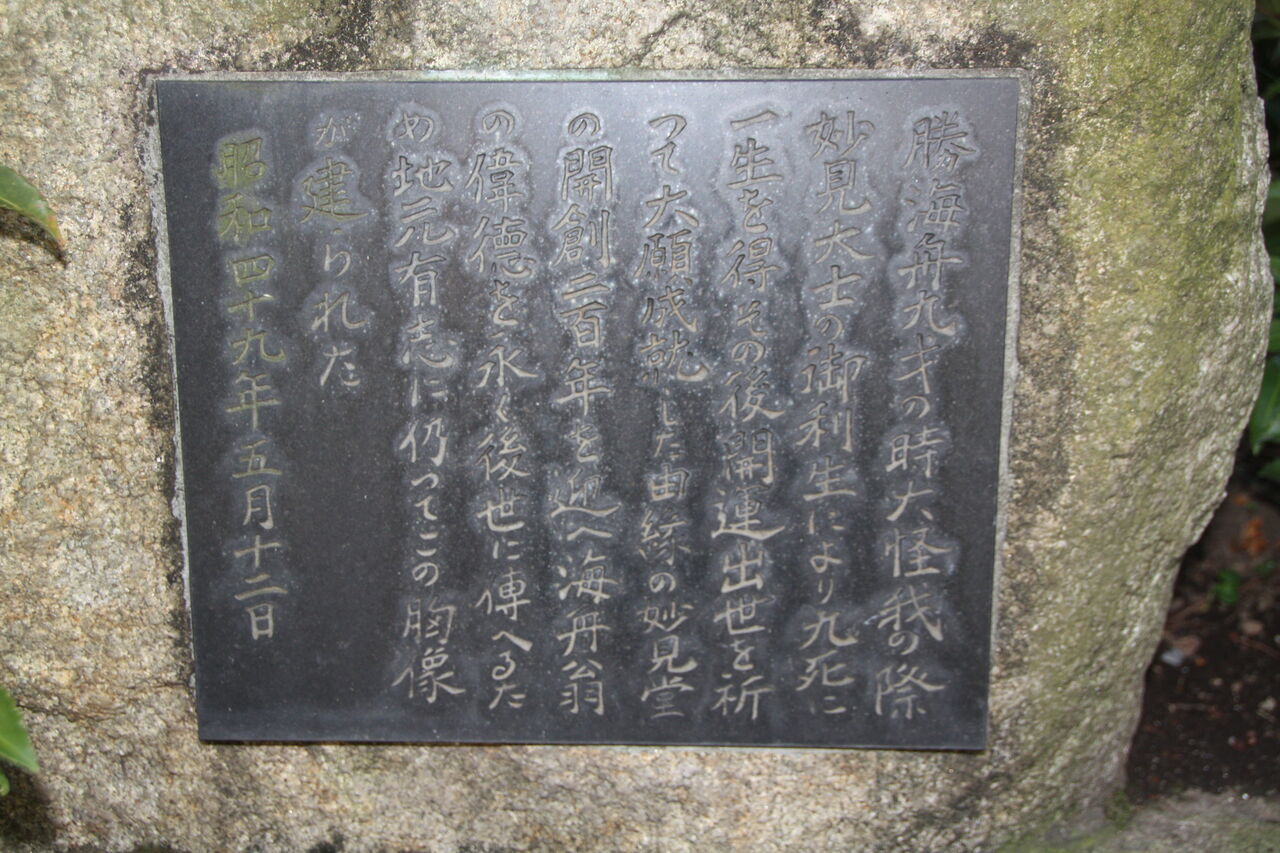 勝海舟九才の時大怪我の際
妙見大士の御利生により九死に
一生を得その後開運出世を祈
つて大願成就した由縁の妙見堂
の開創二百年を迎へ海舟翁
の偉徳を永く後世に傳へるた
め地元有志に仍ってこの胸像
が建られた
昭和四十九年五月十二日